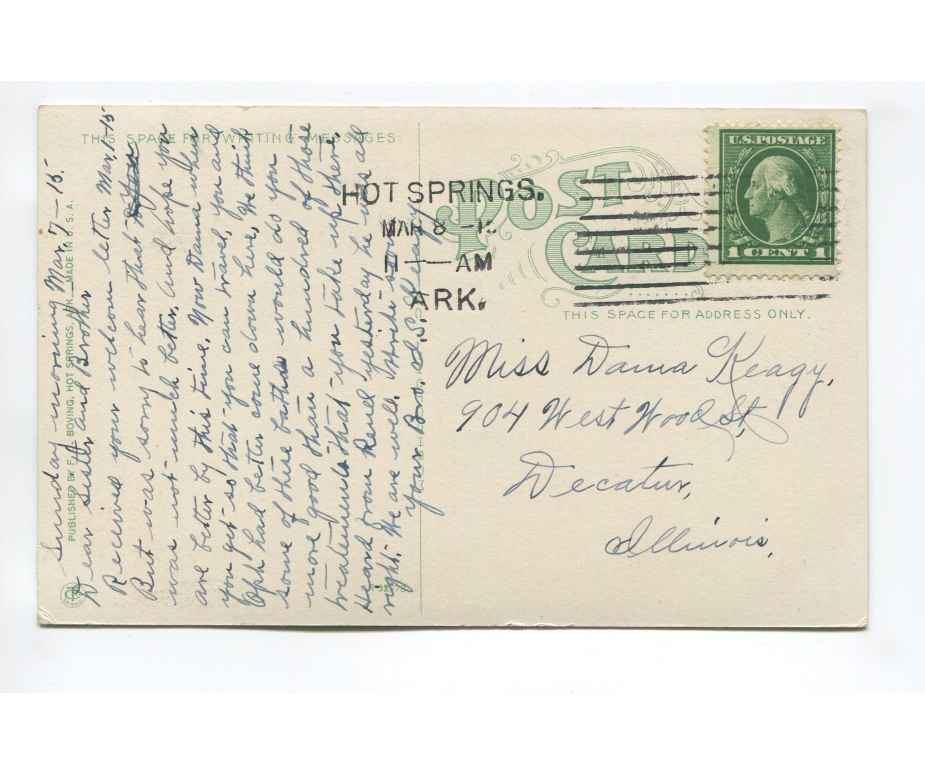 THIS SPACE FOR WRITING MESSAGES
Sunday morning Mar. 7-15-
Dear Sister and Brother
Received your welcom letter Mar, 1-15
But was sorry to hear that
was not much better, And hope you
are better by this time. Your Dama when
you get so that you can travel, you and
Oph had better come down here, We think
some of these baths would do you
more good than a hundred of those
treatments that you take up there,
Heard from Rend yesterday he is all
right. We are well. Write soon
your Bro. ad. S. Keagy
PUBLISHED BY F. J. BOVING, HOT SPRINGS, ARK. MADE IN U.S.A.
POST
CARD
HOT SPRINGS.
MAR 8 -15
11 — AM
ARK.
U.S. POSTAGE
1 CENT 1
THIS SPACE FOR ADDRESS ONLY.
Miss Dama Keagy,
904 West Wood St,
Decatur,
Illinois,